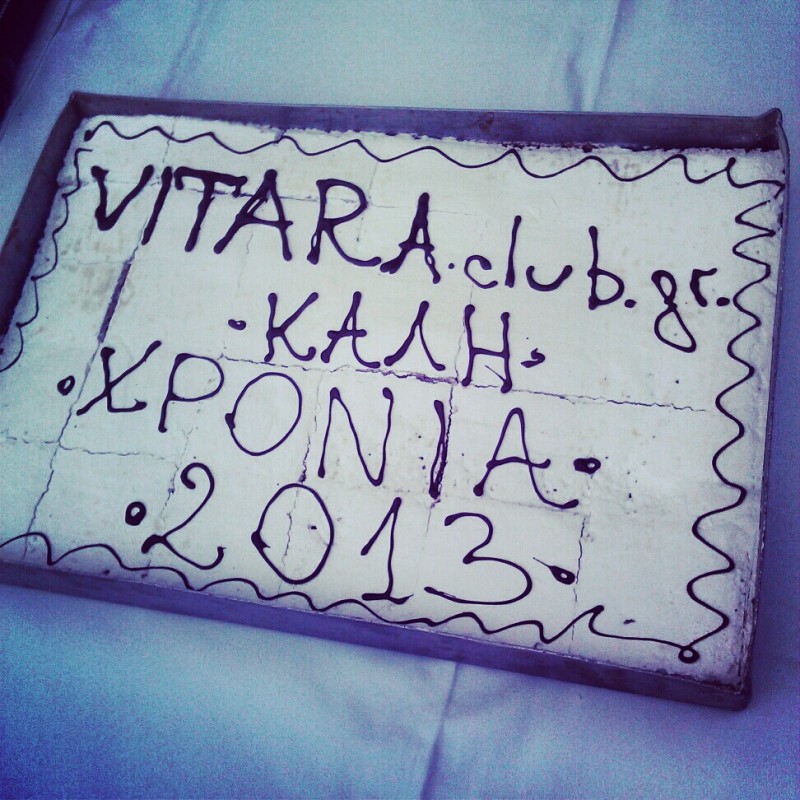 VITARA.club.gr.
·ΚΑΛΗ·
·ΧΡΟΝΙΑ·
·2013·